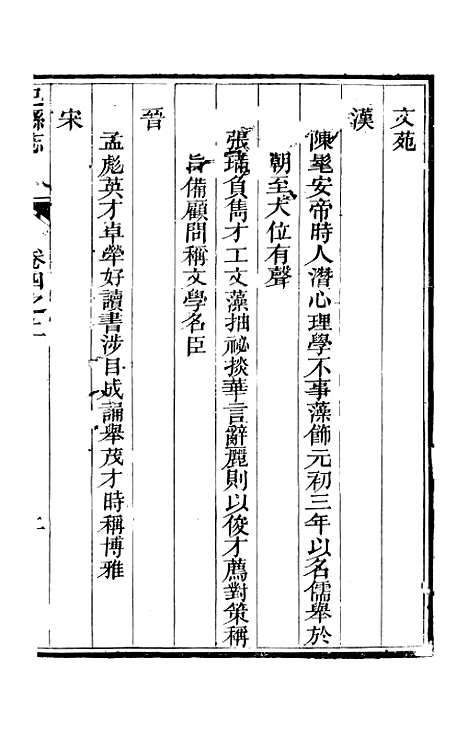 文苑
漢
陳髦安帝時人潛心理學不事藻飾元初三年以名儒舉於
朝至大位有聲
張瑀負雋才工文藻抽祕掞華言辭麗則以俊才薦對策稱
旨備顧問稱文學名臣
晉
孟彪英才卓犖好讀書涉目成誦舉茂才時稱博雅
宋
縣志
卷四之二